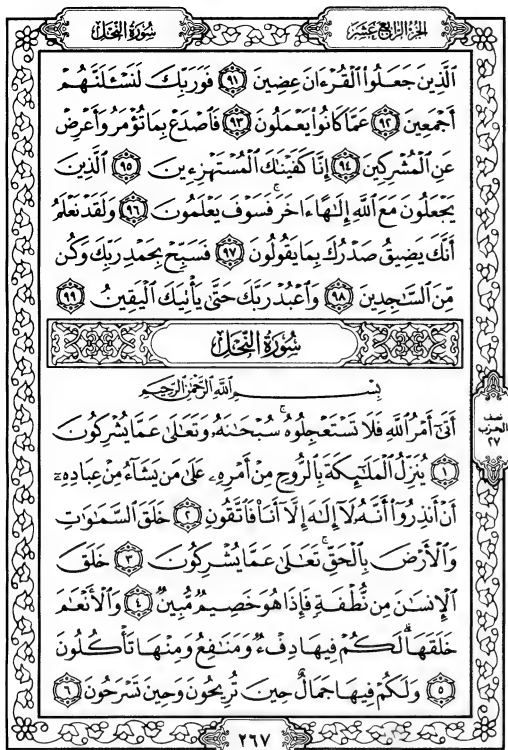 سُورَةُ النَّحْلِ
الجُزْءُ الرَّابِعَ عَشَرَ
الَّذِينَ جَعَلُوا۟ الْقُرْءَانَ عِضِينَ ٩١ فَوَرَبِّكَ لَنَسْـَٔلَنَّهُمْ
أَجْمَعِينَ ٩٢ عَمَّا كَانُوا۟ يَعْمَلُونَ ٩٣ فَاصْدَعْ بِمَا تُؤْمَرُ وَأَعْرِضْ
عَنِ الْمُشْرِكِينَ ٩٤ إِنَّا كَفَيْنَٰكَ الْمُسْتَهْزِءِينَ ٩٥ الَّذِينَ
يَجْعَلُونَ مَعَ اللَّهِ إِلَٰهًا ءَاخَرَ ۚ فَسَوْفَ يَعْلَمُونَ ٩٦ وَلَقَدْ نَعْلَمُ
أَنَّكَ يَضِيقُ صَدْرُكَ بِمَا يَقُولُونَ ٩٧ فَسَبِّحْ بِحَمْدِ رَبِّكَ وَكُن
مِّنَ السَّٰجِدِينَ ٩٨ وَاعْبُدْ رَبَّكَ حَتَّىٰ يَأْتِيَكَ الْيَقِينُ ٩٩
سُورَةُ النَّحْلِ
بِسْمِ اللَّهِ الرَّحْمَٰنِ الرَّحِيمِ
أَتَىٰٓ أَمْرُ اللَّهِ فَلَا تَسْتَعْجِلُوهُ ۚ سُبْحَٰنَهُۥ وَتَعَٰلَىٰ عَمَّا يُشْرِكُونَ
١ يُنَزِّلُ الْمَلَٰٓئِكَةَ بِالرُّوحِ مِنْ أَمْرِهِۦ عَلَىٰ مَن يَشَآءُ مِنْ عِبَادِهِۦٓ
أَنْ أَنذِرُوٓا۟ أَنَّهُۥ لَآ إِلَٰهَ إِلَّآ أَنَا۠ فَاتَّقُونِ ٢ خَلَقَ السَّمَٰوَٰتِ
وَالْأَرْضَ بِالْحَقِّ ۚ تَعَٰلَىٰ عَمَّا يُشْرِكُونَ ٣ خَلَقَ
الْإِنسَٰنَ مِن نُّطْفَةٍ فَإِذَا هُوَ خَصِيمٌ مُّبِينٌ ٤ وَالْأَنْعَٰمَ
خَلَقَهَا ۗ لَكُمْ فِيهَا دِفْءٌ وَمَنَٰفِعُ وَمِنْهَا تَأْكُلُونَ
٥ وَلَكُمْ فِيهَا جَمَالٌ حِينَ تُرِيحُونَ وَحِينَ تَسْرَحُونَ ٦
نصف
الحزب
٢٧
٢٦٧